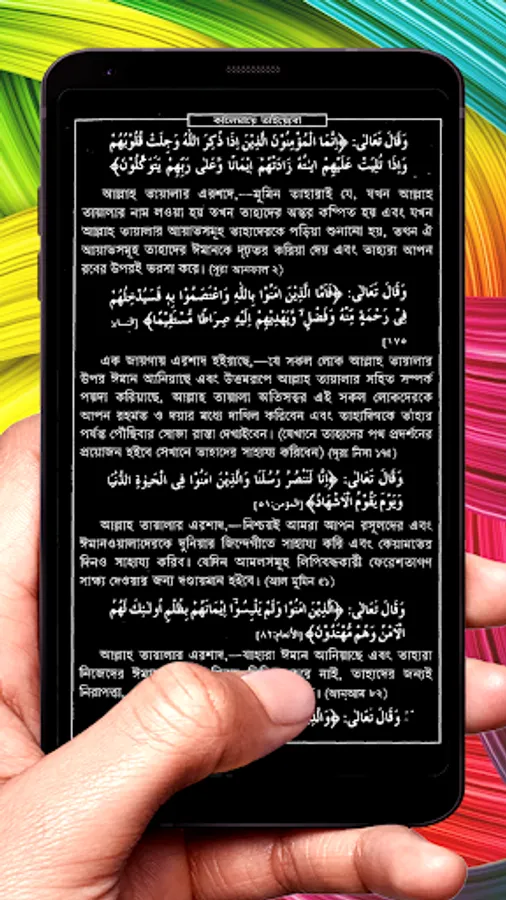 কালেমায়ে তাইয়্যেবা
وَقَالَ تَعَالٰى: ﴿اِنَّمَا الْمُؤْمِنُوْنَ الَّذِيْنَ اِذَا ذُكِرَ اللّٰهُ وَجِلَتْ قُلُوْبُهُمْ
وَاِذَا تُلِيَتْ عَلَيْهِمْ اٰيٰتُهٗ زَادَتْهُمْ اِيْمَانًا وَّعَلٰى رَبِّهِمْ يَتَوَكَّلُوْنَ﴾
আল্লাহ তায়ালার এরশাদ,—মুমিন তাহারাই যে, যখন আল্লাহ
তায়ালার নাম লওয়া হয় তখন তাহাদের অন্তর কম্পিত হয় এবং যখন
আল্লাহ তায়ালার আয়াতসমূহ তাহাদেরকে পড়িয়া শুনানো হয়, তখন ঐ
আয়াতসমূহ তাহাদের ঈমানকে দৃঢ়তর করিয়া দেয় এবং তাহারা আপন
রবের উপরই ভরসা করে। (সূরা আনফাল ২)
وَقَالَ تَعَالٰى: ﴿فَاَمَّا الَّذِيْنَ اٰمَنُوْا بِاللّٰهِ وَاعْتَصَمُوْا بِهٖ فَسَيُدْخِلُهُمْ
فِىْ رَحْمَةٍ مِّنْهُ وَفَضْلٍ ۙ وَّيَهْدِيْهِمْ اِلَيْهِ صِرَاطًا مُّسْتَقِيْمًا﴾ [النساء
١٧٥]
এক জায়গায় এরশাদ হইয়াছে,—যে সকল লোক আল্লাহ তায়ালার
উপর ঈমান আনিয়াছে এবং উত্তমরূপে আল্লাহ তায়ালার সহিত সম্পর্ক
পয়দা করিয়াছে, আল্লাহ তায়ালা অতিসত্বর এই সকল লোকদেরকে
আপন রহমত ও দয়ার মধ্যে দাখিল করিবেন এবং তাহাদিগকে তাঁহার
পর্যন্ত পৌঁছিবার সোজা রাস্তা দেখাইবেন। (যেখানে তাহাদের পথ প্রদর্শনের
প্রয়োজন হইবে সেখানে তাহাদের সাহায্য করিবেন) (সূরা নিসা ১৭৫)
وَقَالَ تَعَالٰى: ﴿اِنَّا لَنَنْصُرُ رُسُلَنَا وَالَّذِيْنَ اٰمَنُوْا فِى الْحَيٰوةِ الدُّنْيَا
وَيَوْمَ يَقُوْمُ الْاَشْهَادُ﴾ [المؤمن:٥١]
আল্লাহ তায়ালার এরশাদ,—নিশ্চয়ই আমরা আপন রসূলদের এবং
ঈমানওয়ালাদেরকে দুনিয়ার জিন্দেগীতে সাহায্য করি এবং কেয়ামতের
দিনও সাহায্য করিব। যেদিন আমলসমূহ লিপিবদ্ধকারী ফেরেশতাগণ
সাক্ষ্য দেওয়ার জন্য দণ্ডায়মান হইবে। (আল মুমিন ৫১)
وَقَالَ تَعَالٰى: ﴿اَلَّذِيْنَ اٰمَنُوْا وَلَمْ يَلْبِسُوْۤا اِيْمَانَهُمْ بِظُلْمٍ اُولٰۤئِكَ لَهُمُ
الْاَمْنُ وَهُمْ مُّهْتَدُوْنَ﴾ [الأنعام:٨٢]
আল্লাহ তায়ালার এরশাদ,—যাহারা ঈমান আনিয়াছে এবং তাহারা
নিজেদের ঈমা নাই, তাহাদের জন্যই
নিরাপত্তা, (আনআম ৮২)
وَقَالَ تَعَالٰى: ﴿وَالَّذِ